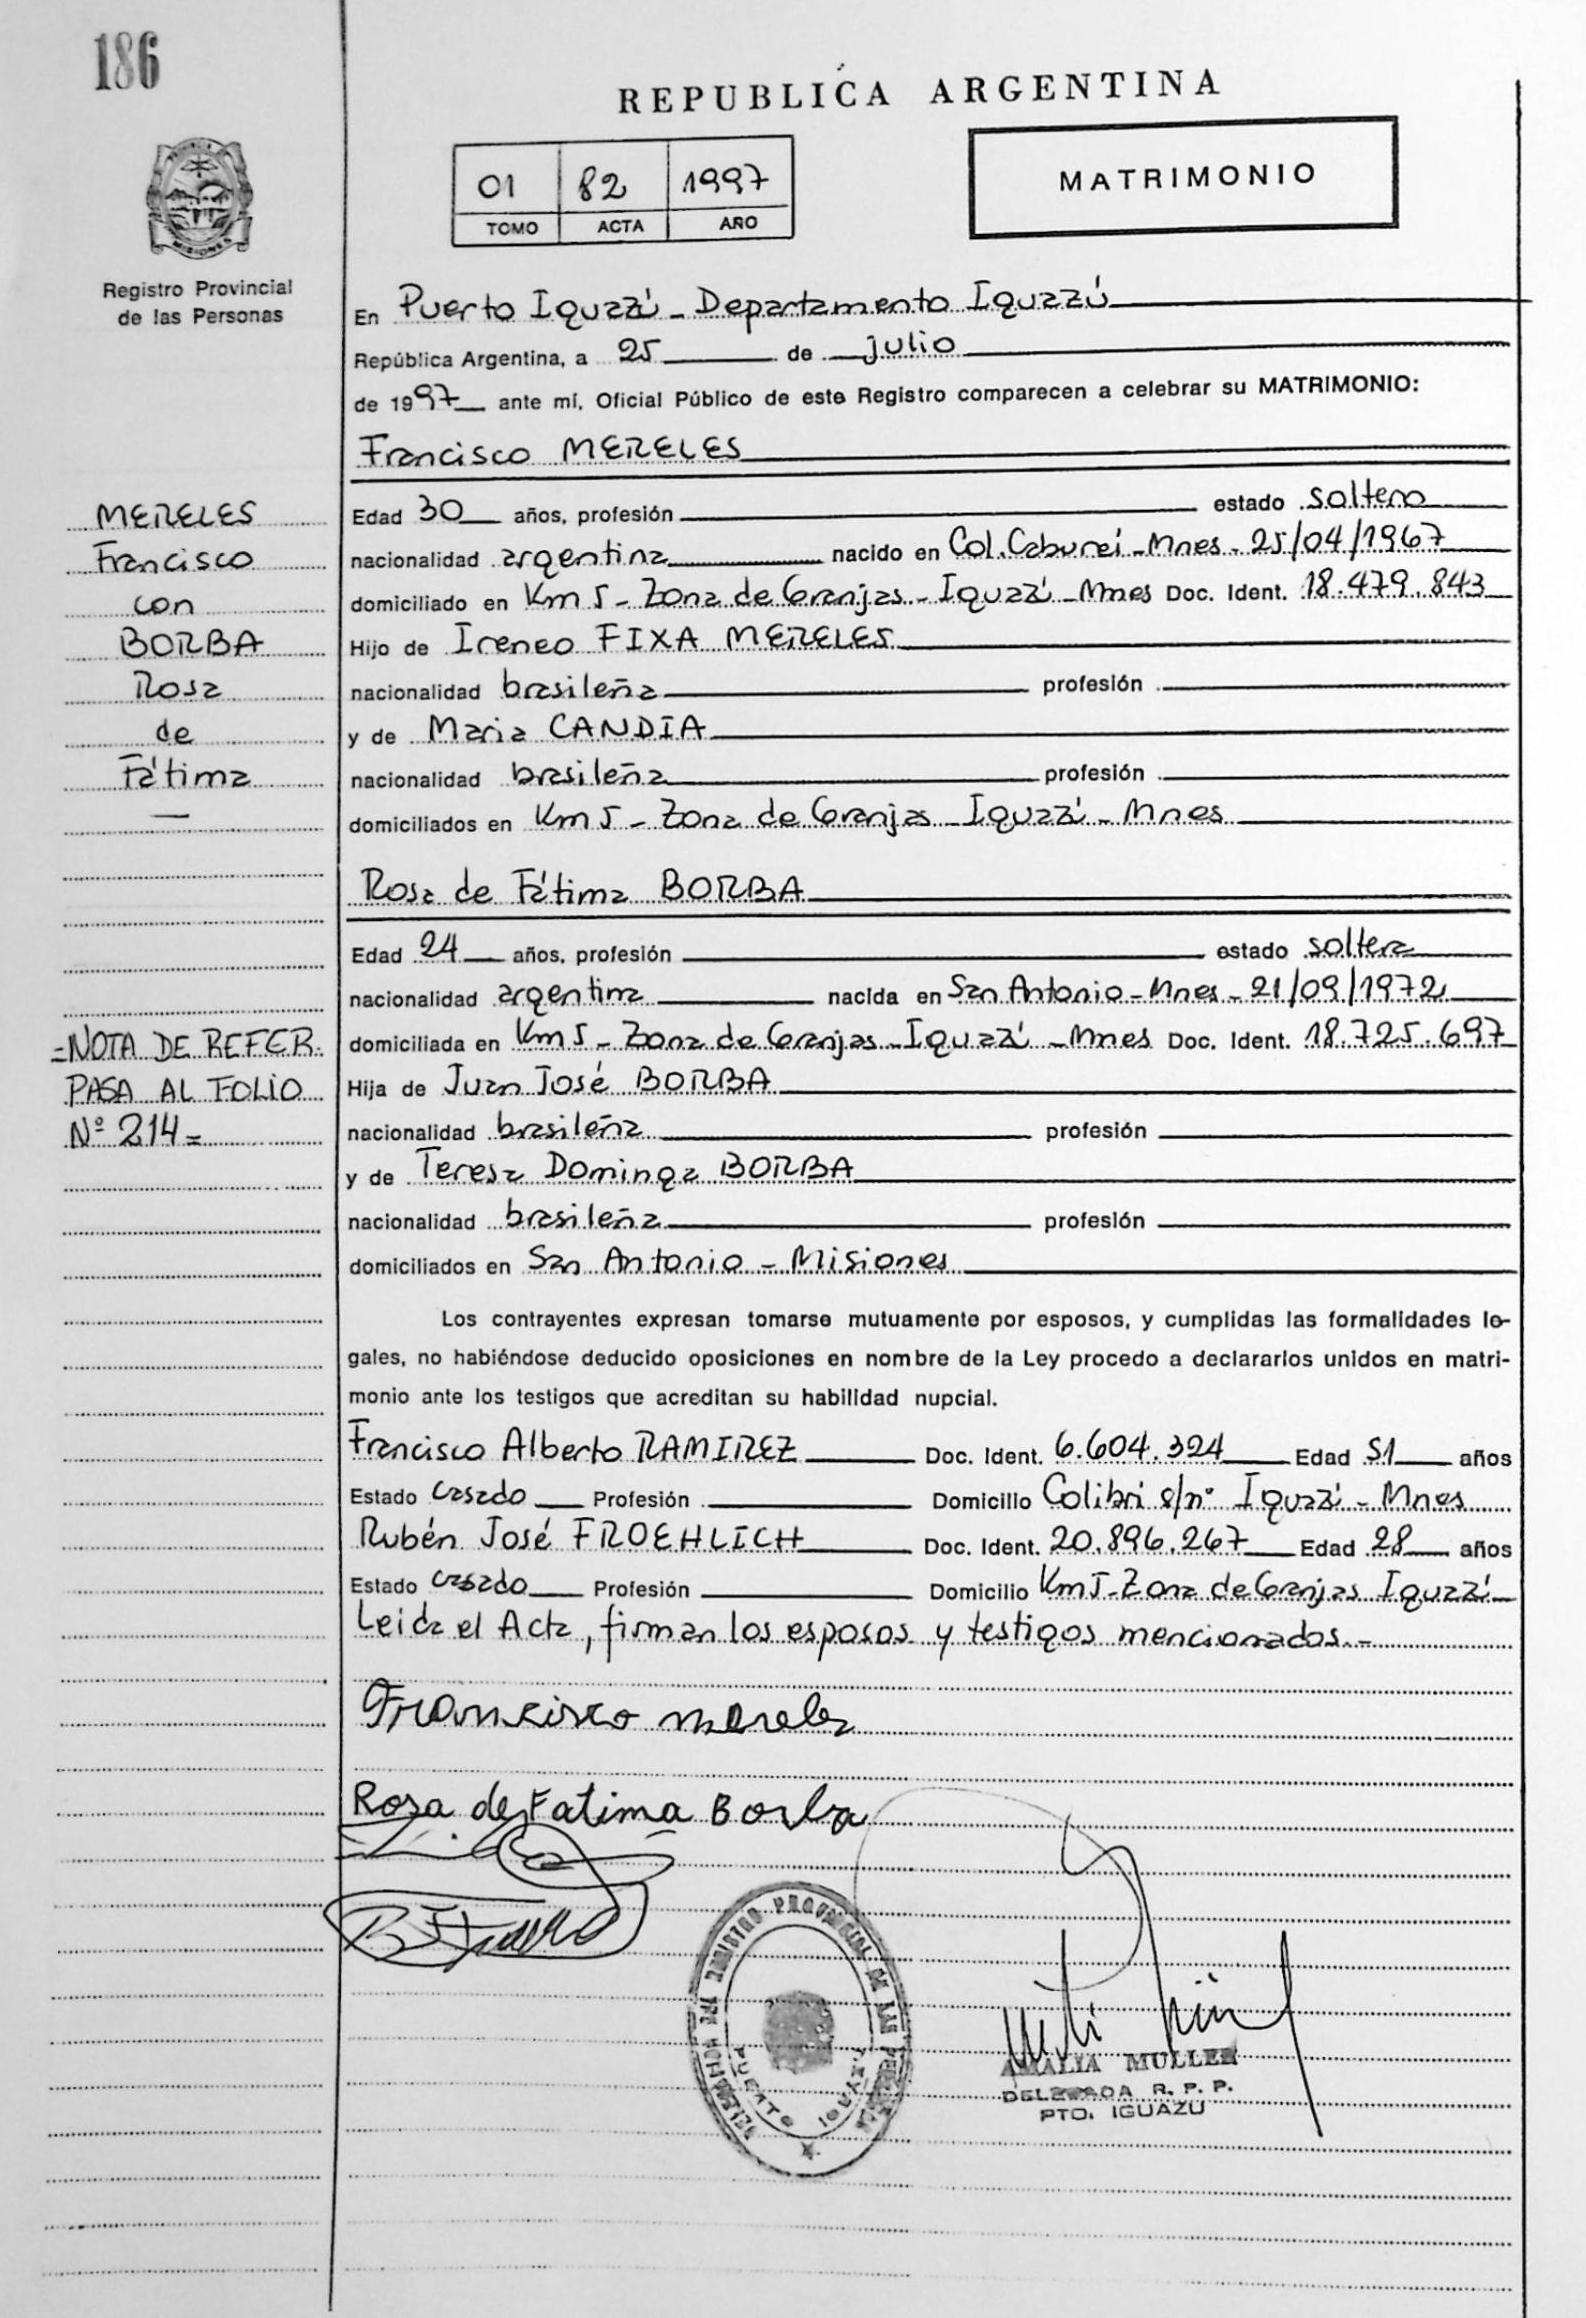 186
REPUBLICA ARGENTINA
01 82 1997
TOMO ACTA AÑO
MATRIMONIO
MISIONES
Registro Provincial
de las Personas
En Puerto Iguazú - Departamento Iguazú
República Argentina, a 25 de julio
de 1997 ante mí, Oficial Público de este Registro comparecen a celebrar su MATRIMONIO:
Francisco MERELES
MERELES
Francisco
con
BORBA
Rosa
de
Fátima
Edad 30 años, profesión estado soltero
nacionalidad argentina nacido en Col. Cabureí - Mnes - 25/04/1967
domiciliado en Km 5 - Zona de Granjas - Iguazú - Mnes Doc. Ident. 18.479.843
Hijo de Ireneo FIXA MERELES
nacionalidad brasileña profesión
y de Maria CANDIA
nacionalidad brasileña profesión
domiciliados en Km 5 - Zona de Granjas Iguazú - Mnes
Rosa de Fátima BORBA
Edad 24 años, profesión estado soltera
nacionalidad argentina nacida en San Antonio - Mnes - 21/09/1972
domiciliada en Km 5 - Zona de Granjas - Iguazú - Mnes Doc. Ident. 18.725.697
Hija de Juan José BORBA
nacionalidad brasileña profesión
y de Teresa Dominga BORBA
nacionalidad brasileña profesión
domiciliados en San Antonio - Misiones
=NOTA DE REFER.
PASA AL FOLIO
Nº 214=
Los contrayentes expresan tomarse mutuamente por esposos, y cumplidas las formalidades le-
gales, no habiéndose deducido oposiciones en nombre de la Ley procedo a declararlos unidos en matri-
monio ante los testigos que acreditan su habilidad nupcial.
Francisco Alberto RAMIREZ Doc. Ident. 6.604.324 Edad 51 años
Estado casado Profesión Domicilio Colibri s/nº Iguazú - Mnes
Rubén José FROEHLICH Doc. Ident. 20.896.267 Edad 28 años
Estado casado Profesión Domicilio Km 5 - Zona de Granjas Iguazú
Leida el Acta, firman los esposos y testigos mencionados.-
Francisco Mereles
Rosa de Fatima Borba
REGISTRO PROVINCIAL DE LAS PERSONAS
PUERTO IGUAZU
AMALIA MULLER
DELEGADA R. P. P.
PTO. IGUAZU